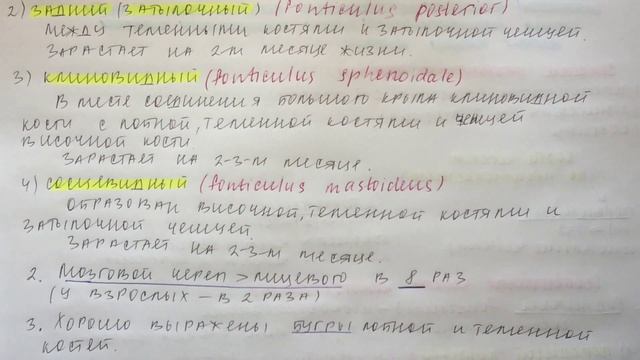 2) ЗАДНИЙ (ЗАТЫЛОЧНЫЙ) (fonticulus posterior)
МЕЖДУ ТЕМЕННЫМИ КОСТЯМИ И ЗАТЫЛОЧНОЙ ЧЕШУЕЙ.
ЗАРАСТАЕТ НА 2-М МЕСЯЦЕ ЖИЗНИ.
3) КЛИНОВИДНЫЙ (fonticulus sphenoidale)
В МЕСТЕ СОЕДИНЕНИЯ БОЛЬШОГО КРЫЛА КЛИНОВИДНОЙ
КОСТИ С ЛОБНОЙ, ТЕМЕННОЙ КОСТЯМИ И ЧЕШУЕЙ
ВИСОЧНОЙ КОСТИ.
ЗАРАСТАЕТ НА 2-3-М МЕСЯЦЕ.
4) СОСЦЕВИДНЫЙ (fonticulus mastoideus)
ОБРАЗОВАН ВИСОЧНОЙ, ТЕМЕННОЙ КОСТЯМИ И
ЗАТЫЛОЧНОЙ ЧЕШУЕЙ.
ЗАРАСТАЕТ НА 2-3-М МЕСЯЦЕ.
2. МОЗГОВОЙ ЧЕРЕП > ЛИЦЕВОГО В 8 РАЗ
(У ВЗРОСЛЫХ – В 2 РАЗА)
3. ХОРОШО ВЫРАЖЕНЫ БУГРЫ ЛОБНОЙ И ТЕМЕННОЙ
КОСТЕЙ.